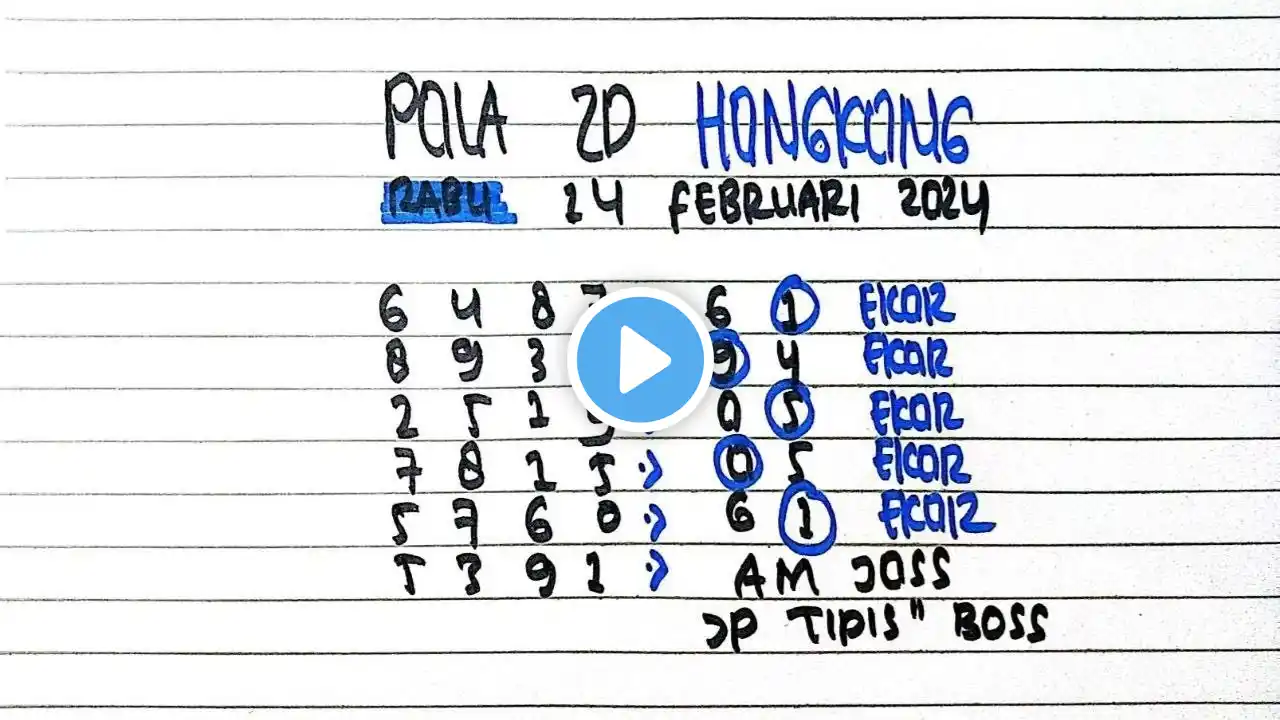 POLA 2D HONGKONG
RABU 14 FEBRUARI 2024
6 4 8 7 6 1 EKOR
8 9 3 9 4 EKOR
2 5 1 0 5 EKOR
7 8 1 5 :> 0 5 EKOR
5 7 6 0 :> 6 1 EKOR
5 3 9 1 :> AM JOSS
JP TIPIS" BOSS